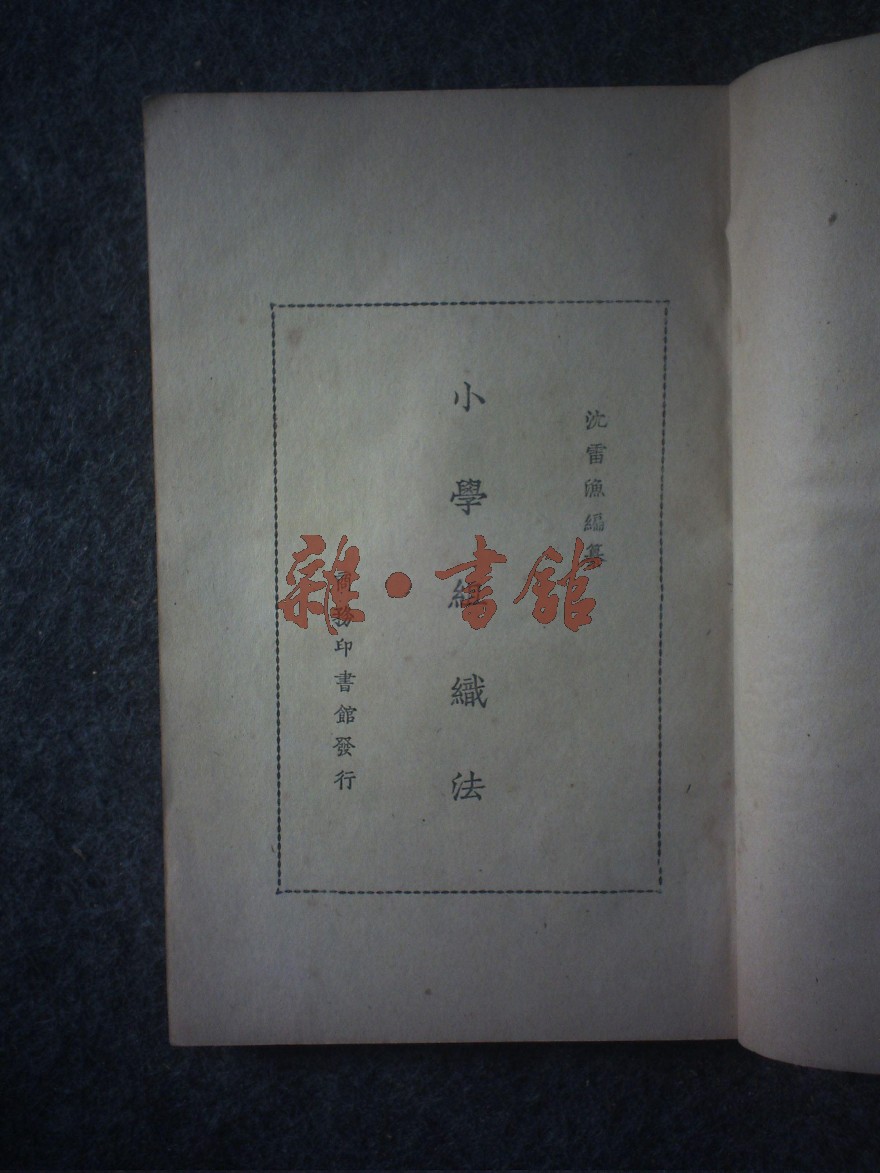 沈雷漁編纂
小學組織法
商務印書館發行
雜·書館